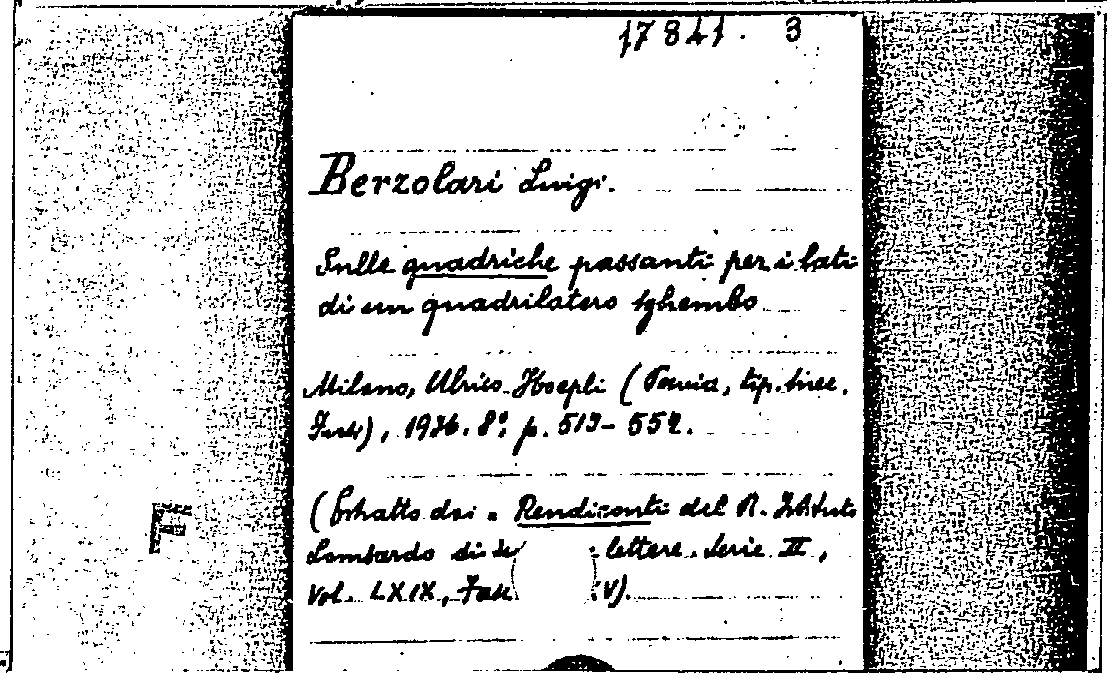 17841. 3
Berzolari Luigi.
Sulle quadriche passanti per i lati
di un quadrilatero sghembo
Milano, Ulrico Hoepli (Pavia, tip. succ.
), 1936. 8°, p. 519-552.
(Estratto dai "Rendiconti del R. Istituto
Lombardo di lettere. Serie II,
Vol. LXIX, Fasc V).
F